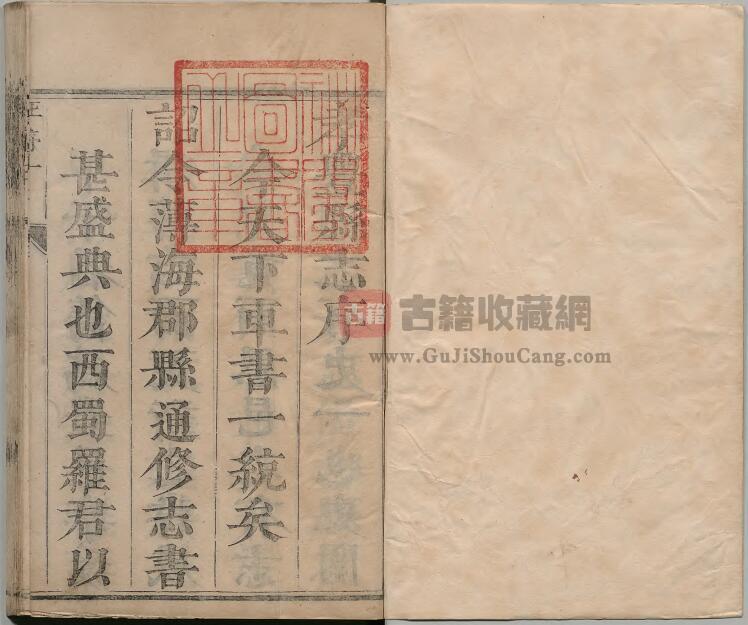 孝豐縣志序
今天下車書一統矣
詔令薄海郡縣通修志書
甚盛典也西蜀羅君以
古籍
古籍收藏網
www.GuJiShouCang.com